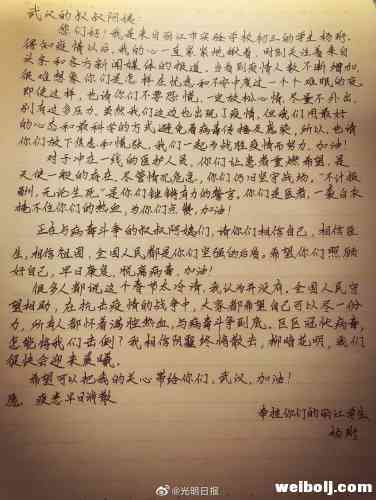 武汉的叔叔阿姨:
您们好!我是来自丽江市实验学校初三的学生杨
得知疫情以后,我的心一直紧紧地揪着,时刻关注着来自
头条和各方新闻媒体的报道,当看到疫情人数不断增加,
很难想象你们是怎样在忧患和不安中度过一个个难眠的夜。
即使这样,也请你们不要恐慌,一定放松心情,尽量不外出,
别有过多压力。虽然我们这边也出现了疫情,但我们用最好
的心态和最科学的方式避免着病毒传播及感染,所以,也请
你们放下焦虑和慌张。我们一起为战胜疫情而努力。加油!
对于冲在一线的医护人员,你们让患者重燃希望,是
天使一般的存在,尽管情况危急,你们仍旧坚守战场。"不计报
酬,无论生死"是你们铿锵有力的誓言。你们是医者,一袭白衣
掩不住你们的热血,为你们点赞,加油!
正在与病毒斗争的叔叔阿姨们,请你们相信自己,相信医
生,相信祖国,全国人民都是你们坚强的后盾。希望你们照顾
好自己,早日康复,脱离病毒,加油!
很多人都说这个春节太冷清,我认为并没有。全国人民守
望相助,在抗击疫情的战争中,大家都希望自己可以尽一份
力,所有人都怀着满腔热血,与病毒斗争到底。区区冠状病毒,
怎能将我们击倒?我相信阴霾终将散去,柳暗花明,我们
很快会迎来晨曦。
希望可以把我的关心带给你们,武汉,加油!
愿 疫患早日消散
牵挂你们的丽江学生
杨
@光明日报
weibolj.com